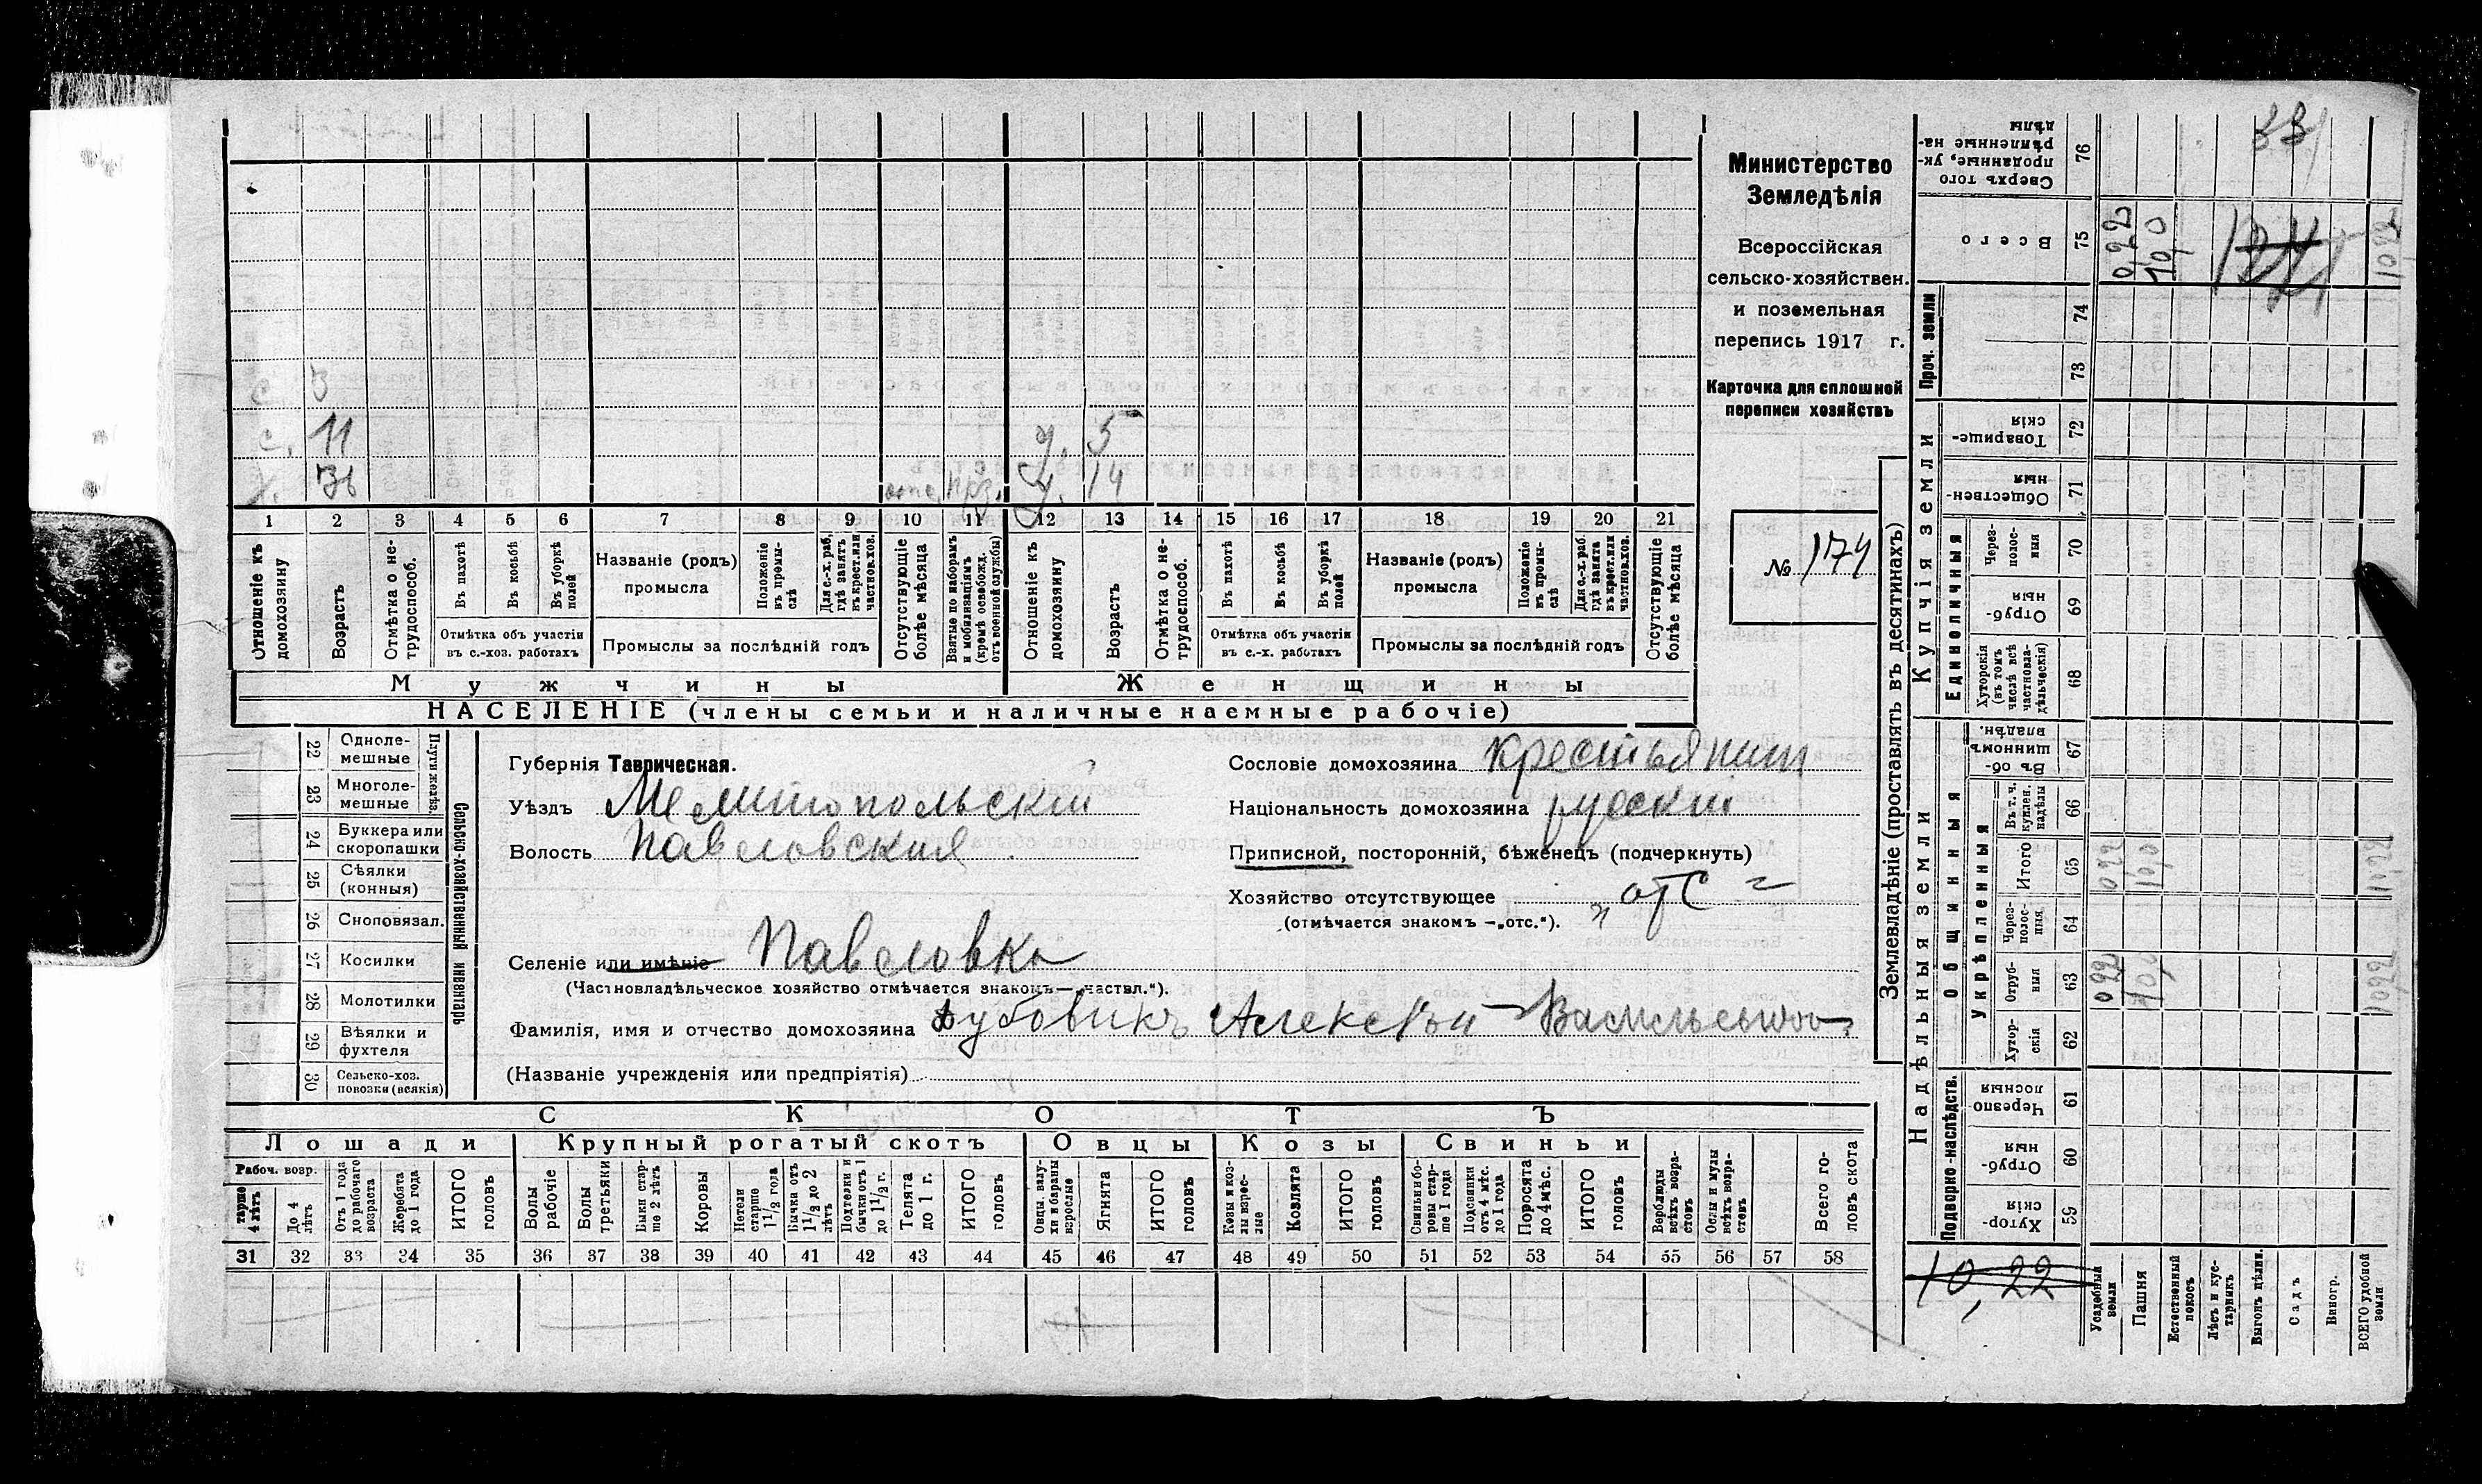 с. 3
с. 11 у. 5
х. 36 отс. у. 14
1 2 3 4 5 6 7 8 9 10 11 12 13 14 15 16 17 18 19 20 21
Отношеніе къ домохозяину
Возрастъ
Отмѣтка о нетрудоспособ.
Въ пахотѣ
Въ косьбѣ
Въ уборкѣ полей
Отмѣтка объ участіи въ с.-хоз. работахъ
Названіе (родъ) промысла
Положеніе въ промыслѣ
Для с.-х. раб. гдѣ занятъ въ крест. или частнов. хоз.
Промыслы за послѣдній годъ
Отсутствующіе болѣе мѣсяца
Взятые по наборамъ и мобилизаціямъ (кромѣ освобожд. отъ военной службы)
Отношеніе къ домохозяину
Возрастъ
Отмѣтка о нетрудоспособ.
Въ пахотѣ
Въ косьбѣ
Въ уборкѣ полей
Отмѣтка объ участіи въ с.-х. работахъ
Названіе (родъ) промысла
Положеніе въ промыслѣ
Для с.-х. раб. гдѣ занята въ крест. или частнов. хоз.
Промыслы за послѣдній годъ
Отсутствующіе болѣе мѣсяца
Мужчины Женщины
НАСЕЛЕНІЕ (члены семьи и наличные наемные рабочіе)
Министерство
Земледѣлія
Всероссійская
сельско-хозяйствен.
и поземельная
перепись 1917 г.
Карточка для сплошной
переписи хозяйствъ
№ 174
Сельско-хозяйственный инвентарь
Плуги желѣз.
22 Однолемешные
23 Многолемешные
24 Буккера или скоропашки
25 Сѣялки (конныя)
26 Сноповязал.
27 Косилки
28 Молотилки
29 Вѣялки и фухтеля
30 Сельско-хоз. повозки (всякія)
Губернія Таврическая.
Уѣздъ Мелитопольскій
Волость Павловская
Сословіе домохозяина крестьянин
Національность домохозяина русскій
Приписной, посторонній, бѣженецъ (подчеркнуть)
Хозяйство отсутствующее „отс“
(отмѣчается знакомъ —„отс.“).
Селеніе или имѣніе Павловка
(Частновладѣльческое хозяйство отмѣчается знакомъ—„частвл.“).
Фамилія, имя и отчество домохозяина Дубовикъ Алексѣй Васильевич
(Названіе учрежденія или предпріятія)
СКОТЪ
Лошади Крупный рогатый скотъ Овцы Козы Свиньи
Рабоч. возр.
тарше 4 лѣтъ
До 4 лѣтъ
Отъ 1 года до рабочаго возраста
Жеребята до 1 года
ИТОГО головъ
Волы рабочіе
Волы третьяки
Быки старше 2 лѣтъ
Коровы
Нетели старше 1 1/2 года
Бычки отъ 1 1/2 до 2 лѣтъ
Подтелки и бычки отъ 1 до 1 1/2 г.
Телята до 1 г.
ИТОГО головъ
Овцы, валухи и бараны взрослые
Ягнята
ИТОГО головъ
Козы и козлы взрослые
Козлята
ИТОГО головъ
Свиньи боровы старше 1 года
Подсвинки отъ 4 мѣс. до 1 года
Поросята до 4 мѣс.
ИТОГО головъ
Верблюды всѣхъ возрастовъ
Ослы и мулы всѣхъ возрастовъ
Всего головъ скота
31 32 33 34 35 36 37 38 39 40 41 42 43 44 45 46 47 48 49 50 51 52 53 54 55 56 57 58
Землевладѣніе (проставлять въ десятинахъ)
Надѣльныя земли
Подворно-наслѣдств.
Хуторскія 59
Отрубныя 60
Черезполосныя 61
Общинныя
Укрѣпленныя
Хуторскія 62
Отрубныя 63 022 10,0 1022
Черезполосныя 64
Итого 65 022 10,0 1022
Въ т. ч. куплен. надѣлы 66
Въ общинномъ владѣн. 67
Купчія земли
Единоличныя
Хуторскія (въ томъ числѣ всѣ частновладѣльческія) 68
Отрубныя 69
Черезполосныя 70
Общественныя 71
Товарищескія 72
Проч. земли
73
74
Всего 75 0,22 10,0 1022
Сверхъ того проданные, укрѣпленные надѣлы 76 33
10,22
Усадебныя земли
Пашня
Естественный покосъ
Лѣсъ и кустарникъ
Выгонъ цѣлин.
Садъ
Виногр.
ВСЕГО удобной земли